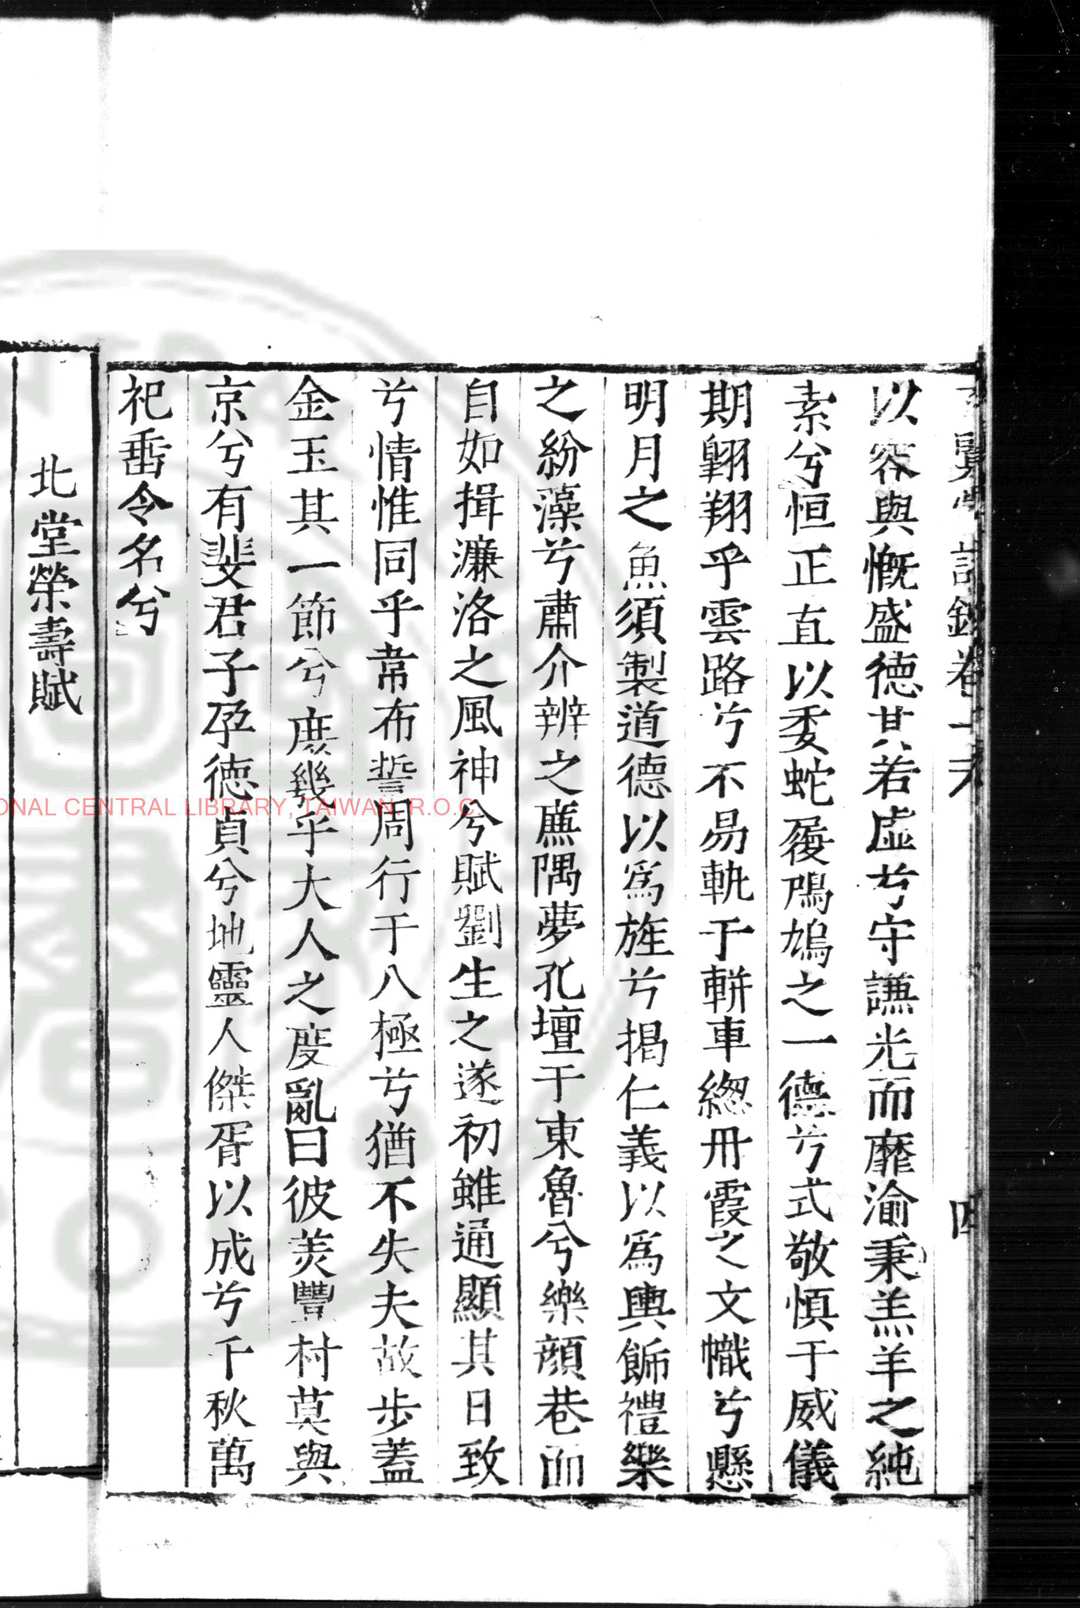 覽 詩鈔卷二 四
以容與慨盛德其若虛兮守謙光而靡渝秉羔羊之純
素兮恒正直以委蛇履鳲鳩之一德兮式敬慎于威儀
期翱翔乎雲路兮不易軌于軿車緫冊霞之文幟兮懸
明月之魚須製道德以為旌兮揭仁義以為輿飾禮樂
之紛藻兮肅介辨之廉隅夢孔壇于東魯兮樂顏巷而
自如揖濂洛之風神兮賦劉生之遂初雖通顯其日致
兮情惟同乎韋布誓周行于八極兮猶不失夫故步蓋
金玉其一節兮庶幾乎大人之度亂曰彼美豐村莫與
京兮有斐君子孕德貞兮地靈人傑胥以成兮千秋萬
祀垂令名兮
北堂榮壽賦
NATIONAL CENTRAL LIBRARY, TAIWAN, R.O.C.